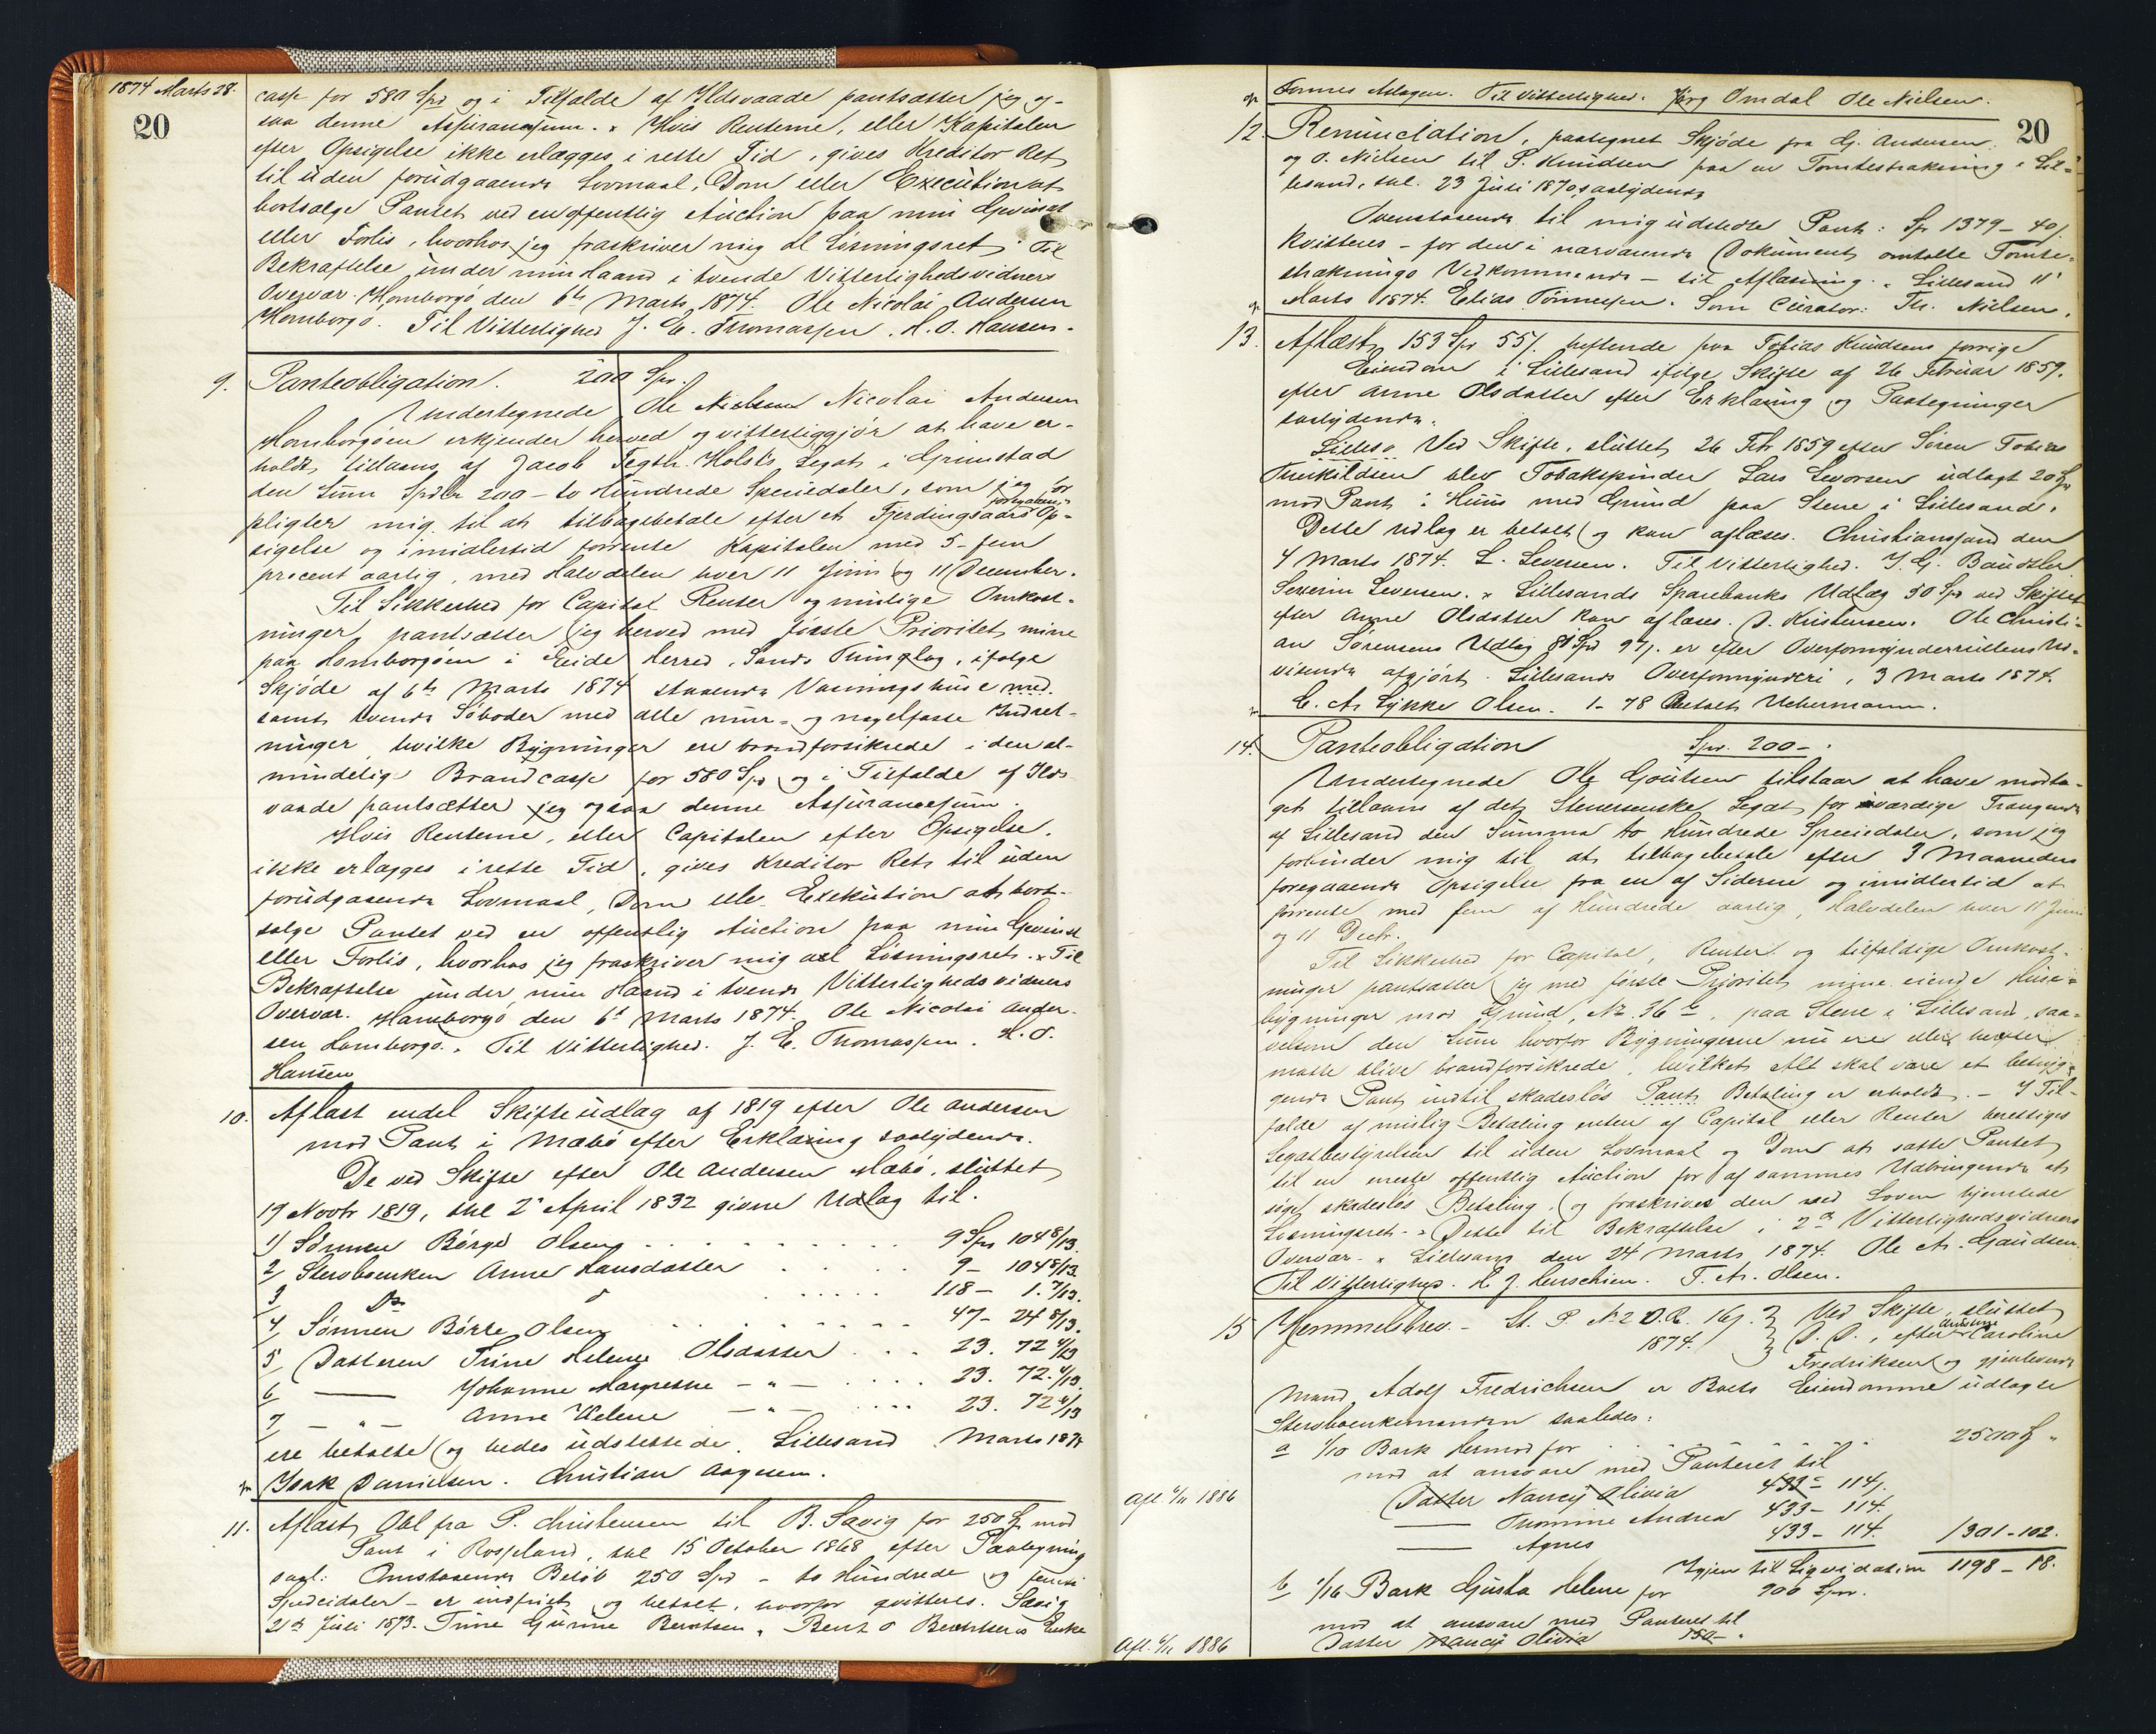 1874 Marts 28.
20
casse for 580 Spd og i Tilfælde af Ildsvaade pantsætter jeg og-
saa denne Assurancesum. " Hvis Renterne, eller Kapitalen
efter Opsigelse ikke erlægges i rette Tid, gives Kreditor Ret
til uden forudgaaende Lovmaal, Dom eller Execution at
bortsælge Pantet ved en offentlig Auction paa min Gevinst
eller Forlis, hvorhos jeg fraskriver mig al Løsningsret. Til
Bekræftelse under min Haand i tvende Vitterlighedsvidners
Overvær. Homborgø den 6te Marts 1874. Ole Nicolai Andersen
Homborgø. Til Vitterlighed J. E. Thomassen. H. O. Hansen.
9. Panteobligation. 200 Spd.
Undertegnede Ole Nielsen Nicolai Andersen
Homborgøen erkjender herved og vitterliggjør at have er-
holdt tillaans af Jacob Tegth. Holsts Legat i Grimstad
den Sum Spdlr 200 - to Hundrede Speciedaler, som jeg for
pligter mig til at tilbagebetale efter et Fjerdingaars foregaaende Op-
sigelse og imidlertid forrente Kapitalen med 5- fem
procent aarlig, med Halvdelen hver 11 Juni og 11 December.
Til Sikkerhed for Capital Renter og mulige Omkost-
ninger pantsætter jeg herved med første Prioritet mine
paa Homborgøen i Eide Herred, Sands Thinglag, ifølge
Skjøde af 6te Marts 1874 staaende Vaaningshuse med
samt tvende Søboder med alle mur- og nagelfaste Indret-
ninger, hvilke Bygninger ere brandforsikrede i den al-
mindelige Brandcasse for 580 Spd og i Tilfælde af Ilds
vaade pantsætter jeg ogsaa denne Assurancesum.
Hvis Renterne, eller Capitalen efter Opsigelse
ikke erlægges i rette Tid, gives Kreditor Ret til uden
forudgaaende Lovmaal, Dom eller Exekution at bort-
sælge Pantet ved en offentlig Auction paa min Gevinst
eller Forlis, hvorhos jeg fraskriver mig al Løsningsret. " Til
Bekræftelse under min Haand i tvende Vitterlighedsvidners
Overvær. Homborgø den 6te Marts 1874. Ole Nicolai Ander-
sen Homborgø. Til Vitterlighed. J. E. Thomassen. H. O.
Hansen
10. Aflæst endel Skifteudlæg af 1819 efter Ole Andersen
mod Pant i Mæbø efter Erklæring saalydende.
De ved Skifte efter Ole Andersen Mæbø, sluttet
19 Novbr 1819, thl 2 April 1832 givne Udlæg til.
1) Sønnen Børge Olsen . . . 9 Spd 104 8/13.
2) Stervboenken Anne Hansdatter . . . 9 - 104 8/13.
3 Do . . . 118 - 1. 7/13.
4) Sønnen Børre Olsen . . . 47 - 24 8/13.
5) Datteren Trine Helene Olsdatter . . . 23. 72 4/13
6 — Johanne Margrethe - " - . . . 23. 72. 4/13.
7 - " - Anne Helene - " - . . . 23. 72 4/13
ere betalte og bedes udslettede. Lillesand Marts 1874
Isak Danielsen. Christian Aagesen.
11. Aflæst Obl fra P. Christensen til B. Savig for 250 Spd mod
Pant i Rosseland, thl 15 October 1868 efter Paategning
saal: Omstaaende Beløb 250 Spd - to Hundrede og femti
Speciedaler - er indfriet og betalt, hvorfor qvitteres. Savig
21de Juli 1873. Trine Gurine Berntsen, Bent O Berntsens Enke
20
Tønnes Aslagsen. Til Vitterlighed. Jørg Omdal Ole Nielsen.
12. Renunciation, paategnet Skjøde fra G. Andersen
og O. Nielsen til P. Knudsen paa en Tomtestrækning i Lil-
lesand, thl. 23 Juli 1870, saalydende
Ovenstaaende til mig udstedte Pant: Sp 1379 - 40/.
kvitteres - for den i nærværende Dokument omtalte Tomte-
stræknings Vedkommende - til Aflæsning. " Lillesand 11'
Marts 1874. Elias Tønnessen. Som Curator: Th. Nielsen.
13. Aflæst 153 Spd 55/. heftende paa Tobias Knudsens forrige
Eiendom i Lillesand ifølge Skifte af 26 Februar 1859.
efter Anne Olsdatter efter Erklæring og Paategninger
saalydende:
Ved Skifte, sluttet 26 Febr 1859 efter Søren Tobias
Therkildsen blev Tobakspinder Lars Levorsen udlagt 20 Spd
mod Pant i Huus med Grund paa Stene i Lillesand.
Dette Udlæg er betalt og kan aflæses. Christianssand den
4 Marts 1874. L. Leversen. Til Vitterlighed. J. G.
Severin Leversen. " Lillesands Sparebanks Udlæg 50 Spd ved Skiftet
efter Anne Olsdatter kan aflæses. O. Kristensen. Ole Christi-
an Sørensens Udlæg 81 Spd 97/. er efter Overformynderrullens Ud-
visende afgjørt. Lillesands Overformynderi, 3 Marts 1874.
C. A. Lykke Olsen. 1-78 Betalt Uchermann.
14. Panteobligation Spd. 200 - .
Undertegnede Ole Goutsen tilstaar at have modta-
get tillaans af det Stenersenske Legat for værdige Trængende
af Lillesand den Summa to Hundrede Speciedaler, som jeg
forbinder mig til at tilbagebetale efter 3 Maaneders
foregaaende Opsigelse fra en af Siderne og imidlertid at
forrente med fem af Hundrede aarlig, Halvdelen hver 11 Juni
og 11 Decbr.
Til Sikkerhed for Capital, Renter og tilfældige Omkost-
ninger pantsætter jeg med første Prioritet mine eiende Huse-
bygninger med Grund, No. 36 , paa Stene i Lillesand, saa-
velsom den Sum hvorfor Bygningerne nu ere eller herefter
maatte blive brandforsikrede, hvilket Alt skal være et betryg-
gende Pant indtil skadesløs Pant Betaling er erholdt. - I Til-
fælde af mislig Betaling enten af Capital eller Renter berettiges
Legatbestyrelsen til uden Lovmaal og Dom at sætte Pantet
til en eneste offentlig Auction for af sammes Udbringende at
søge skadesløs Betaling, og fraskrives den ved Loven hjemlede
Løsningsret. " Dette til Bekræftelse i 2de Vitterlighedsvidners
Overvær. " Lillesand den 24 Marts 1874. Ole A. Gaudsen
Til Vitterlighed. H. J. Henschien. T. A. Olsen.
15 Hemmelsbrev. - St. P. No 2 O.R. 16/. 1874. Ved Skifte, sluttet
D. D., efter Caroline
Fredriksen og gjenlevende
Mand, Adolf Fredrichsen er Boets Eiendomme udlagte
Stervboenkemanden saaledes:
a 1/10 Bark Hermod for . . . 2500 Spd "
mod at ansvare med Panteret til
Datter Nancy Olivia 433 - 114/.
— Thomine Andrea 433 - 114.
— Agnes 433 - 114. 1301 - 102.
Igjen til Liqvidation 1198 - 18.
Afl. 6/11 1886
b 1/16 Bark Gusta Helene for 900 Spd.
mod at ansvare med Panteret til
Datter Nancy Olivia 150 - "
Afl. 6/11 1886